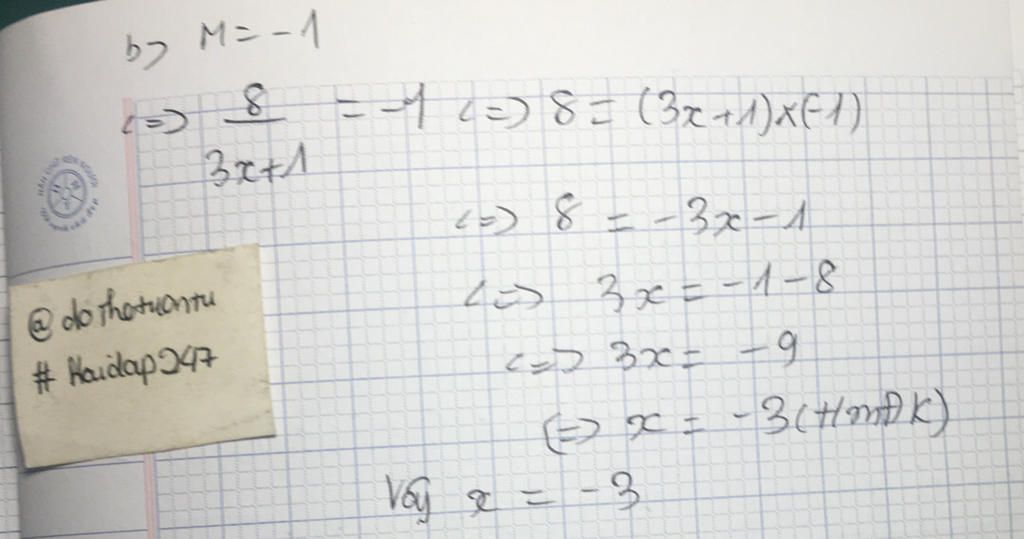 b> M = -1
<=> 8/(3x+1) = -1 <=> 8 = (3x+1)x(-1)
<=> 8 = -3x-1
<=> 3x = -1-8
<=> 3x = -9
<=> x = -3 (tmĐK)
Vậy x = -3
@dothatuantu
# Hoidap247